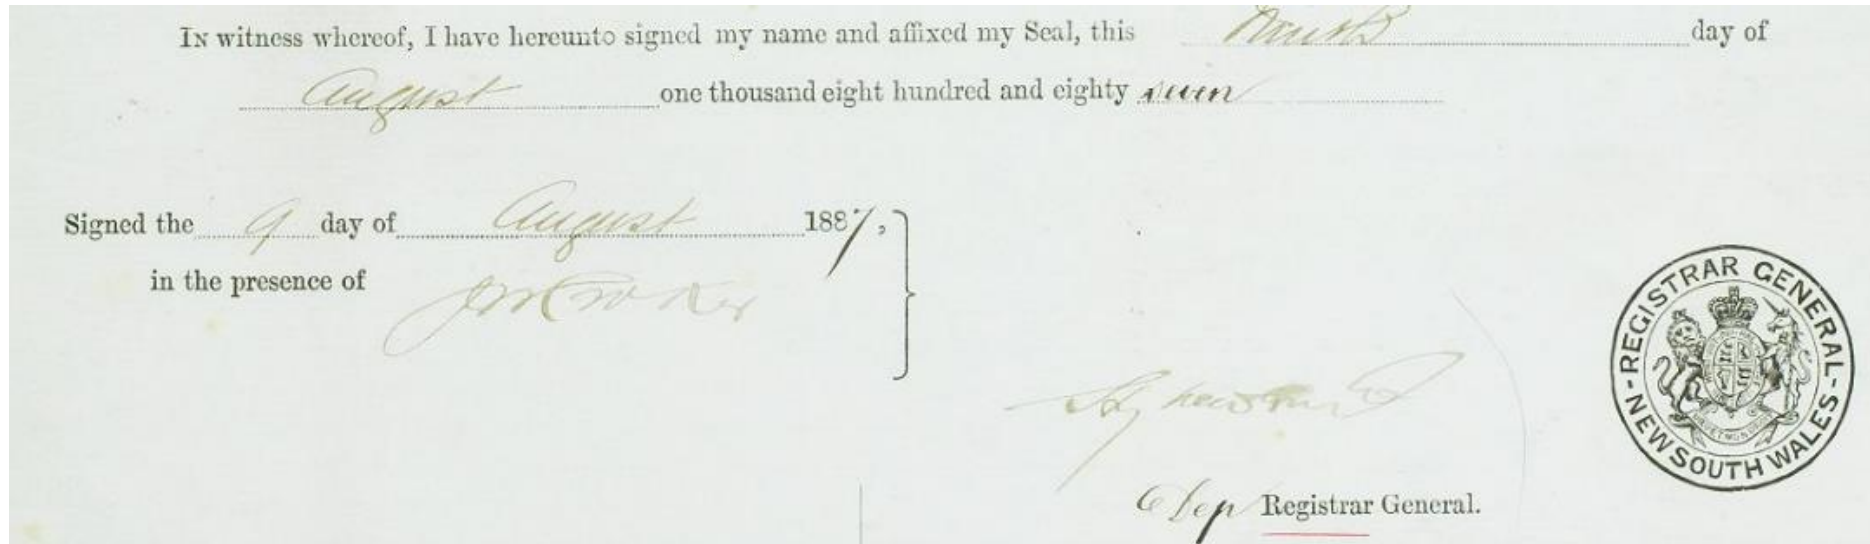 In witness whereof, I have hereunto signed my name and affixed my Seal, this ninth day of
August one thousand eight hundred and eighty seven
Signed the 9 day of August 1887,
in the presence of
Dep Registrar General.
REGISTRAR GENERAL
NEW SOUTH WALES